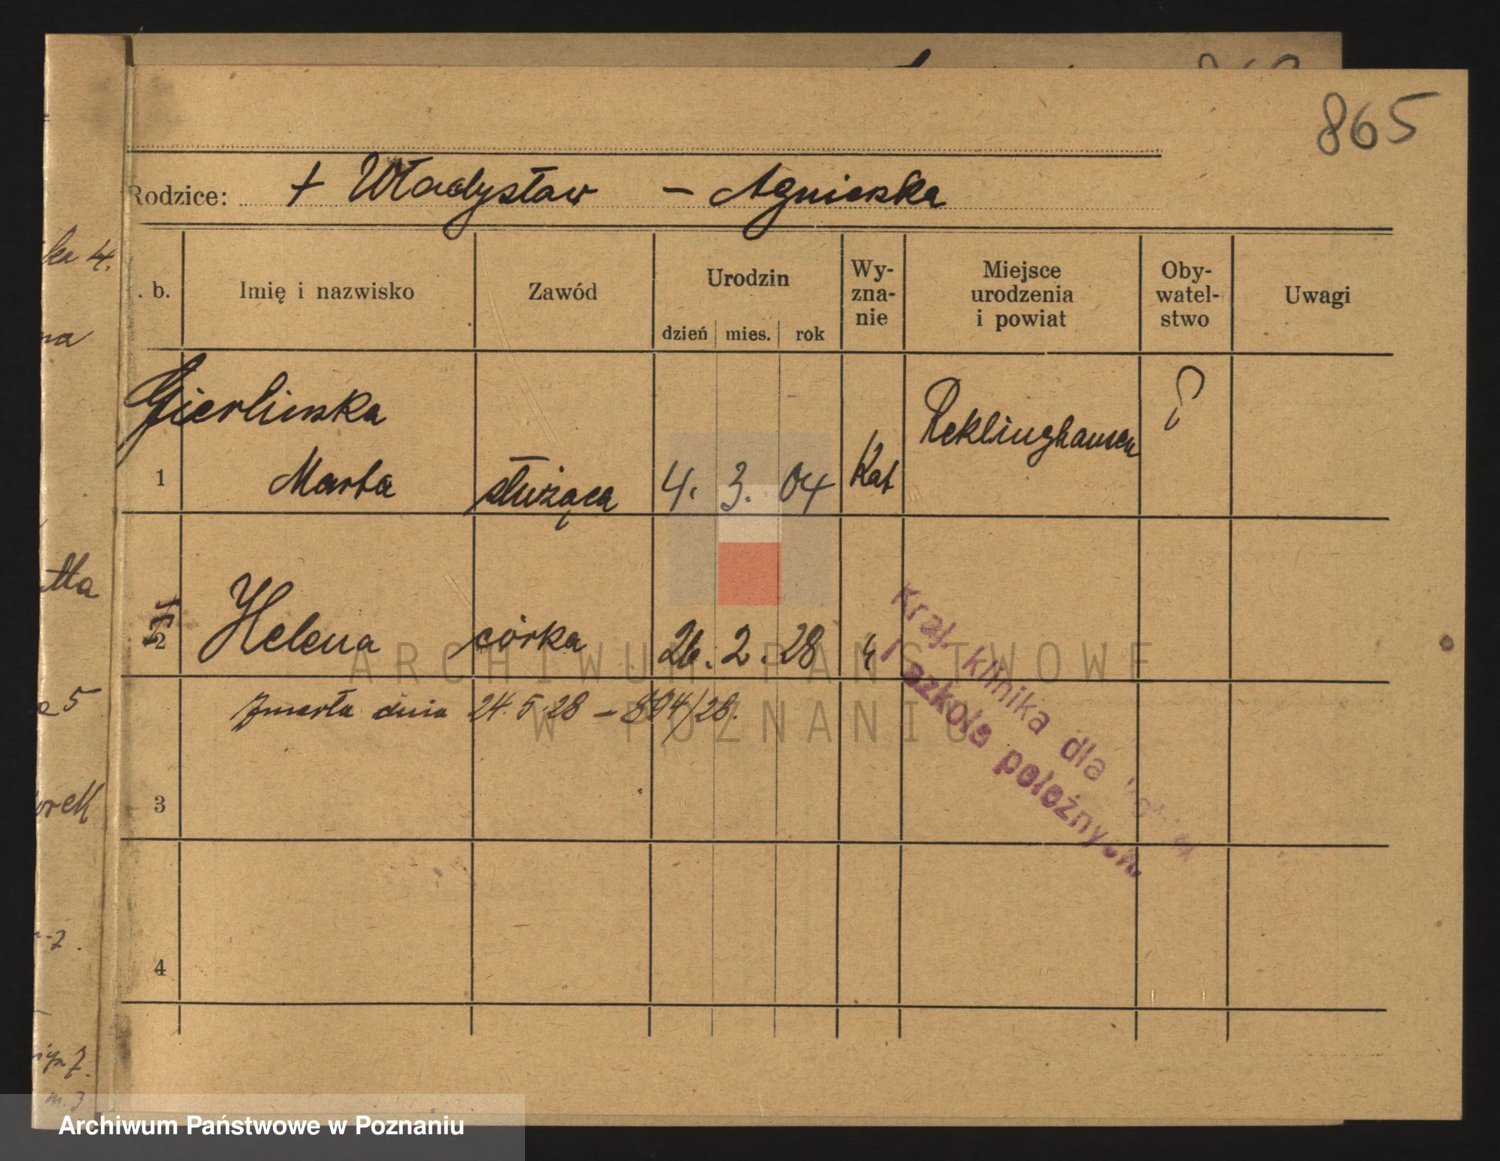 865
Rodzice: + Władysław – Agnieszka
. b. Imię i nazwisko Zawód Urodzin Wy-
zna-
nie Miejsce
urodzenia
i powiat Oby-
watel-
stwo Uwagi
dzień mies. rok
Gierlińska
1 Marta służąca 4. 3. 04 Kat Reklinghausen ?
2 Helena córka 26. 2. 28 "
zmarła dnia 24.5.28 – 894/28.
Kraj. klinika dla
i szkoła położnych.
3
4
ka 4.
na
a 5
m. 3
ARCHIWUM PAŃSTWOWE
W POZNANIU
Archiwum Państwowe w Poznaniu